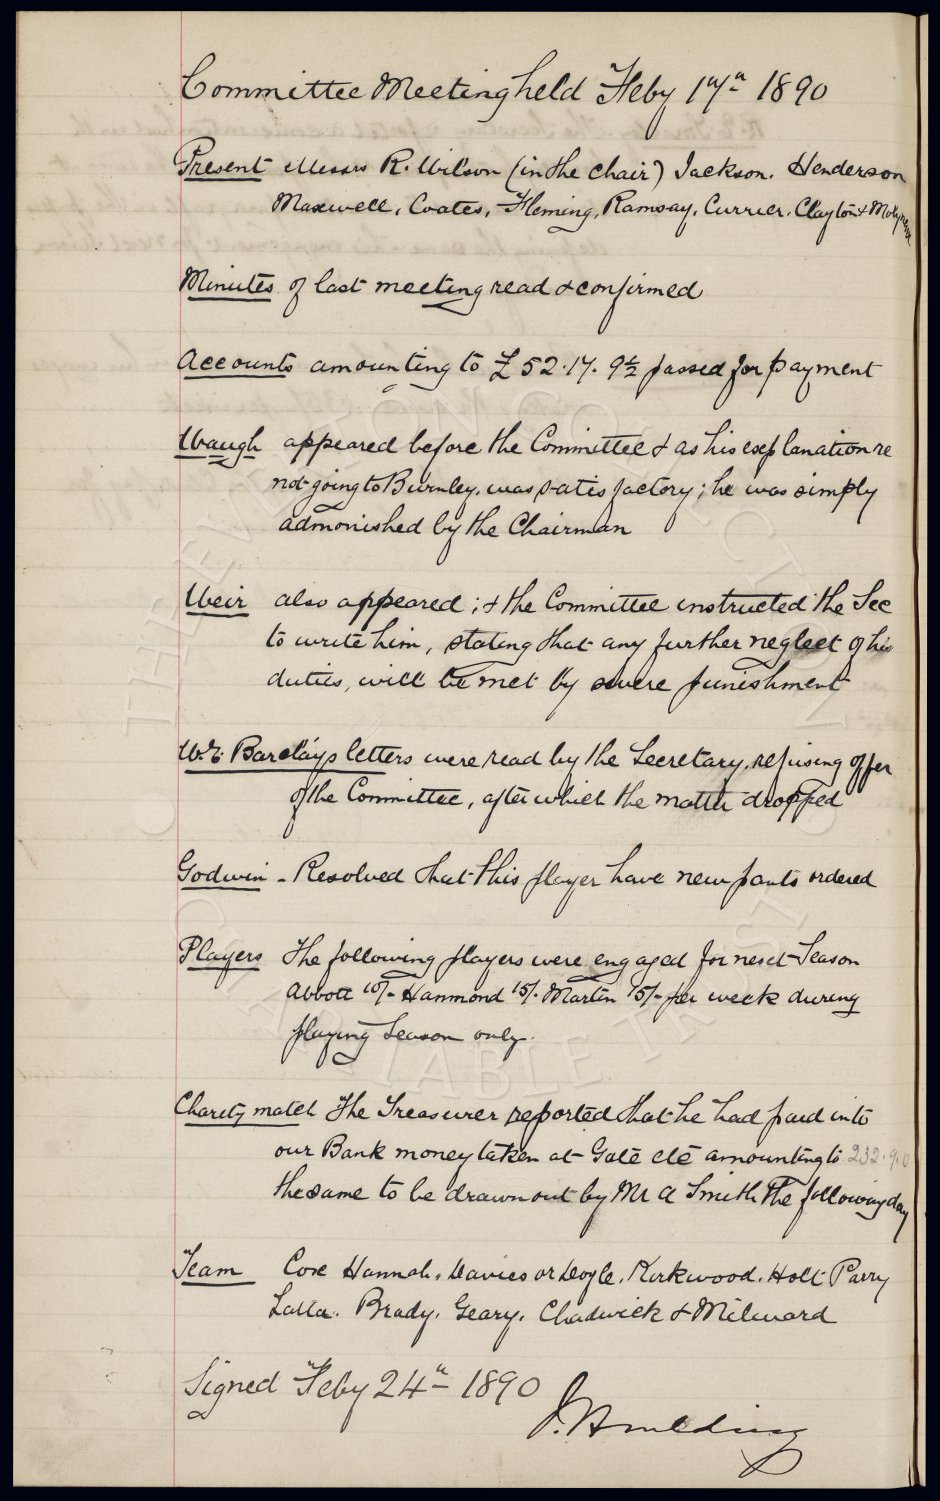 Committee Meeting held Feby 17th 1890
Present Messrs R. Wilson (in the chair) Jackson. Henderson
Maxwell, Coates, Fleming, Ramsay, Currier, Clayton & Molyneux
Minutes of last meeting read & confirmed
Accounts amounting to £52.17.9½ passed for payment
Waugh appeared before the Committee & as his explanation re
not going to Burnley, was satisfactory; he was simply
admonished by the Chairman
Weir also appeared; & the Committee instructed the Sec
to write him, stating that any further neglect of his
duties, will be met by severe punishment
W.E. Barclays letters were read by the Secretary, refusing offer
of the Committee, after which the matter dropped
Godwin - Resolved that this player have new pants ordered
Players The following players were engaged for next Season
Abbott 10/- Hammond 15/- Martin 15/- per week during
playing Season only.
Charity match The Treasurer reported that he had paid into
our Bank money taken at Gate etc amounting to 232.9.0
the same to be drawn out by Mr A Smith the following day
Team Cox Hannah, Davies or Doyle, Kirkwood. Holt Parry
Latta. Brady. Geary. Chadwick & Milward
Signed Feby 24th 1890
J. Houlding
THE EVERTON COLLECTION
CHARITABLE TRUST